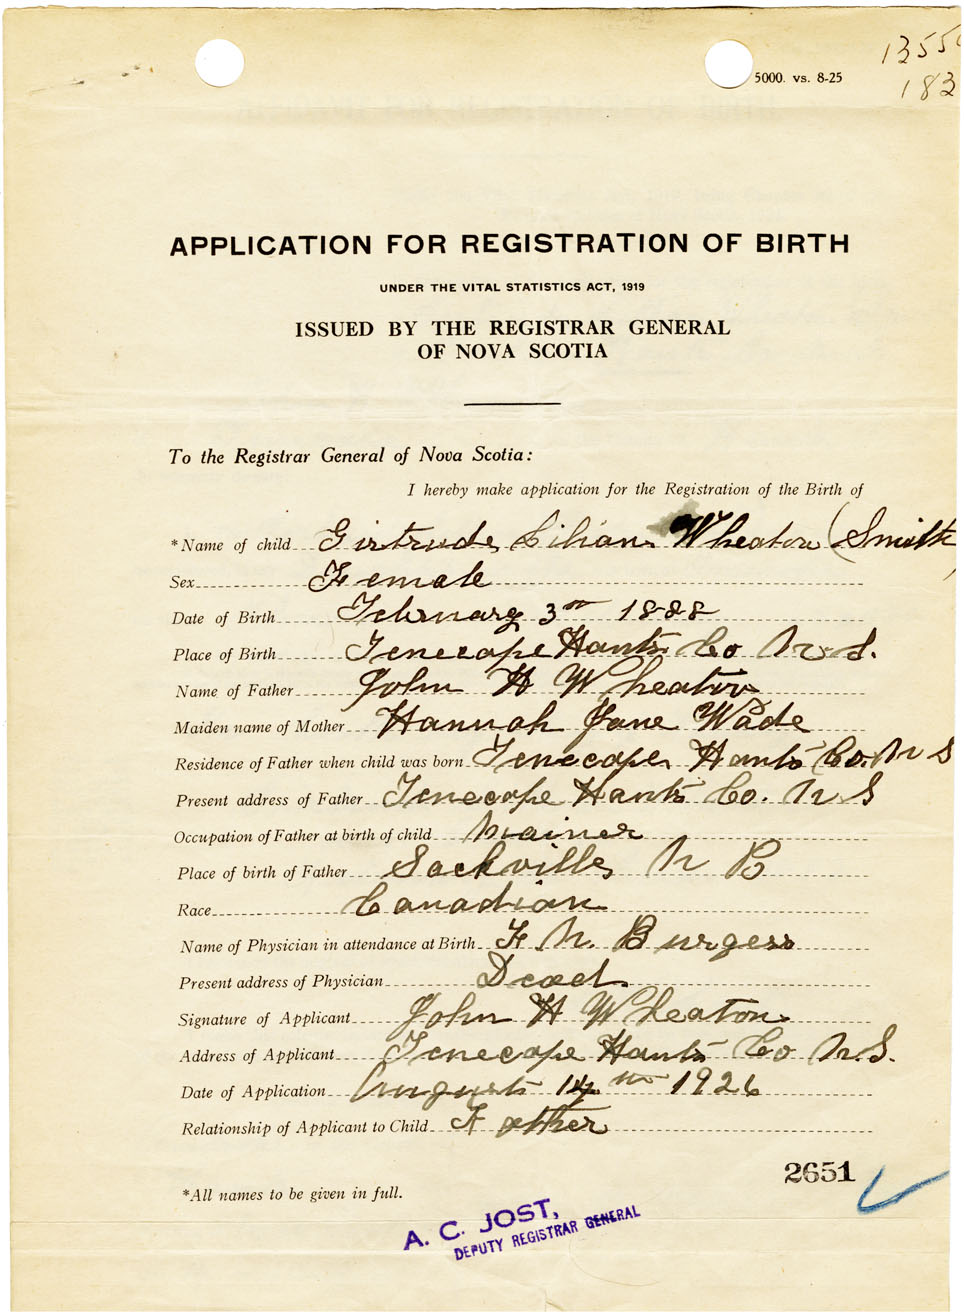 5000. vs. 8-25
1355
183
APPLICATION FOR REGISTRATION OF BIRTH
UNDER THE VITAL STATISTICS ACT, 1919
ISSUED BY THE REGISTRAR GENERAL
OF NOVA SCOTIA
To the Registrar General of Nova Scotia:
I hereby make application for the Registration of the Birth of
*Name of child Girtrude Lilian Wheaton (Smith)
Sex Female
Date of Birth February 3rd 1888
Place of Birth Tenecape Hants Co N S.
Name of Father John H Wheaton
Maiden name of Mother Hannah Jane Wade
Residence of Father when child was born Tenecape Hants Co. N S
Present address of Father Tenecape Hants Co. N S
Occupation of Father at birth of child Mainer
Place of birth of Father Sackville N B
Race Canadian
Name of Physician in attendance at Birth F N. Burgess
Present address of Physician Dead
Signature of Applicant John H Wheaton
Address of Applicant Tenecape Hants Co N.S.
Date of Application August 14th 1926
Relationship of Applicant to Child Father
2651
*All names to be given in full.
A. C. JOST,
DEPUTY REGISTRAR GENERAL